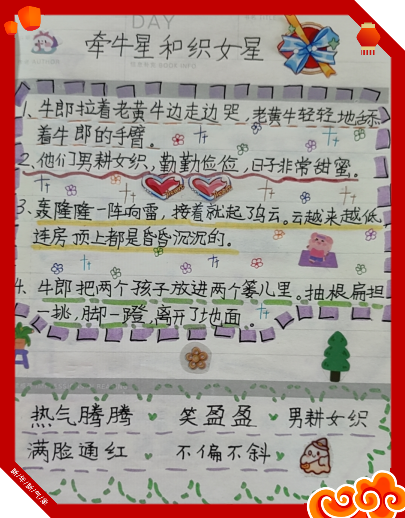 DAY
牵牛星和织女星
1、牛郎拉着老黄牛边走边哭,老黄牛轻轻地舔
着牛郎的手臂。
2、他们男耕女织,勤勤俭俭,日子非常甜蜜。
3、轰隆隆一阵响雷,接着就起了乌云。云越来越低,
连房顶上都是昏昏沉沉的。
4、牛郎把两个孩子放进两个篓儿里。抽根扁担
一挑,脚一蹬,离开了地面。
热气腾腾 笑盈盈 男耕女织
满脸通红 不偏不斜